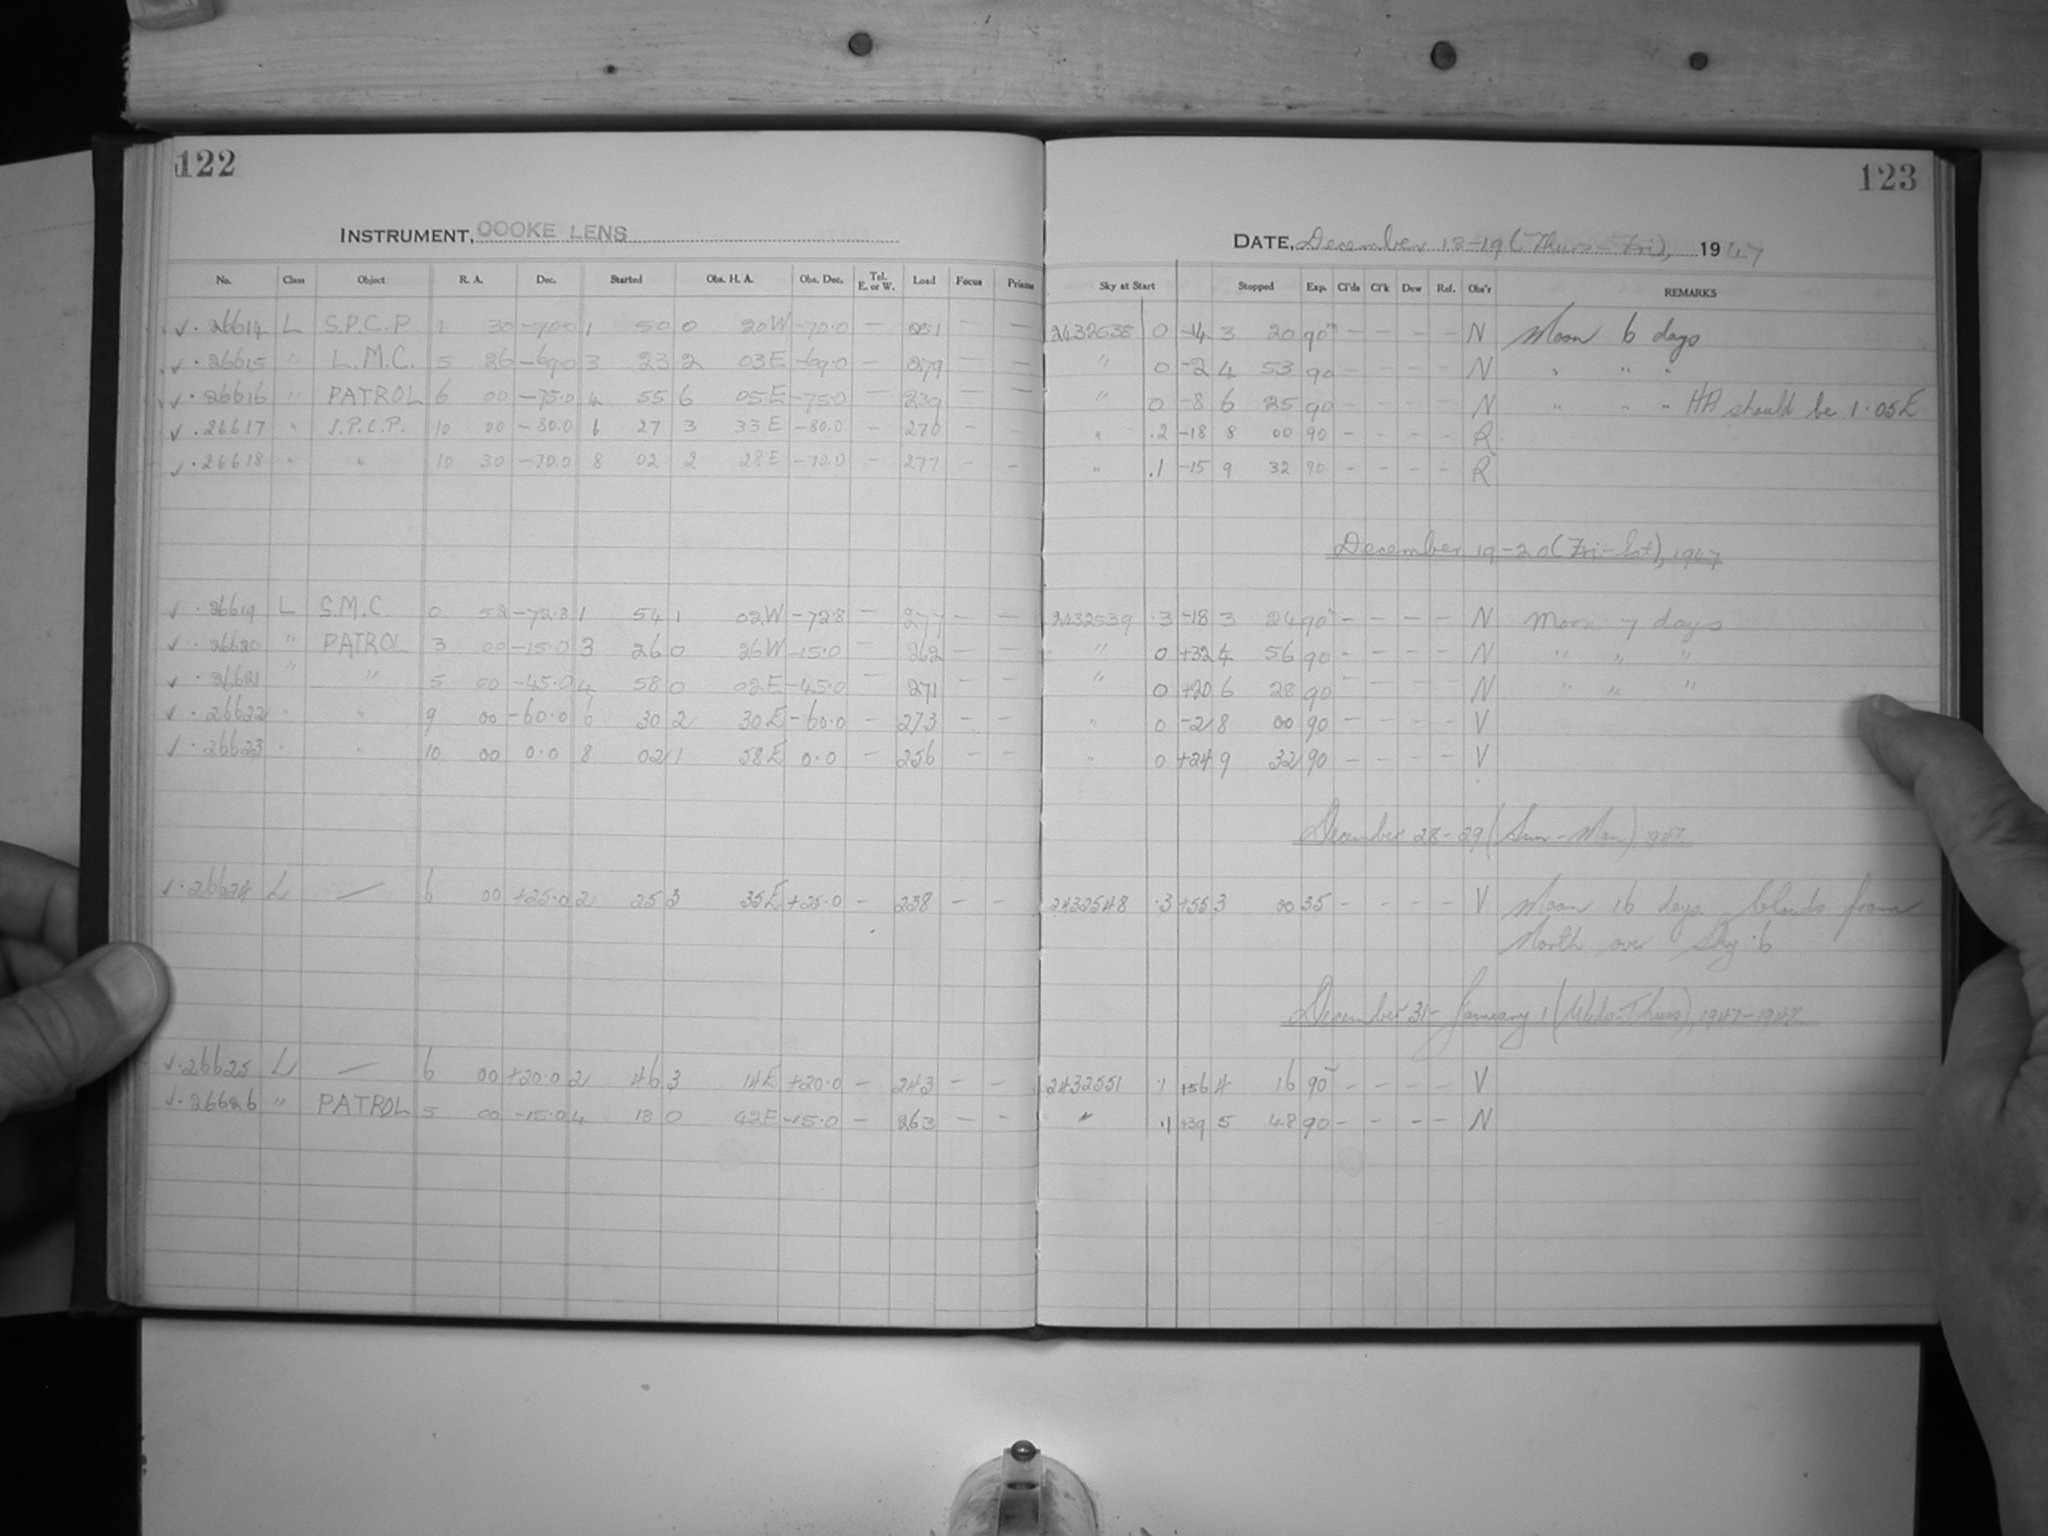 122
123
INSTRUMENT, COOKE LENS
DATE, December 18-19 (Thurs-Fri), 1947
No. Class Object R. A. Dec. Started Obs. H. A. Obs. Dec. Tel. E. or W. Load Focus Prisms Sky at Start Stopped Exp. Cl'ds Cl'k Dew Ref. Obs'r REMARKS
✓ · 26614 L S.P.C.P. 1 30 -70.0 1 50 0 20W -70.0 — 281 — — 2432538 0 -14 3 20 90m — — — — N Moon 6 days
✓ · 26615 " L.M.C. 5 26 -69.0 3 23 2 03E -69.0 — 279 — — " 0 -2 4 53 90 — — — — N " " "
✓ · 26616 " PATROL 6 00 -75.0 4 55 6 05E -75.0 — 239 — — " 0 -8 6 25 90 — — — — N " " " HA should be 1.05E
✓ · 26617 " S.P.C.P. 10 00 -80.0 6 27 3 33E -80.0 — 270 — — " .2 -18 8 00 90 — — — — R
✓ · 26618 " " 10 30 -70.0 8 02 2 28E -70.0 — 277 — — " .1 -15 9 32 90 — — — — R
December 19-20 (Fri-Sat), 1947
✓ · 26619 L S.M.C. 0 52 -72.8 1 54 1 02W -72.8 — 277 — — 2432539 .3 -18 3 24 90 — — — — N Moon 7 days
✓ · 26620 " PATROL 3 00 -15.0 3 26 0 26W -15.0 — 262 — — " 0 +32 4 56 90 — — — — N " " "
✓ · 26621 " " 5 00 -45.0 4 58 0 02E -45.0 — 271 — — " 0 +20 6 28 90 — — — — N " " "
✓ · 26622 " " 9 00 -60.0 6 30 2 30E -60.0 — 273 — — " 0 -2 8 00 90 — — — — V
✓ · 26623 " " 10 00 0.0 8 02 1 58E 0.0 — 256 — — " 0 +24 9 32 90 — — — — V
December 28-29 (Sun-Mon) 1947
✓ · 26624 L — 6 00 +25.0 2 25 3 35E +25.0 — 238 — — 2432548 .3 +55 3 00 35 — — — — V Moon 16 days. Clouds from
North over Sky .6
December 31 - January 1 (Weds-Thurs), 1947-1948
✓ · 26625 L — 6 00 +20.0 2 46 3 14E +20.0 — 243 — — 2432551 .1 +56 4 16 90 — — — — V
✓ · 26626 " PATROL 5 00 -15.0 4 18 0 42E -15.0 — 263 — — " .1 +39 5 48 90 — — — — N